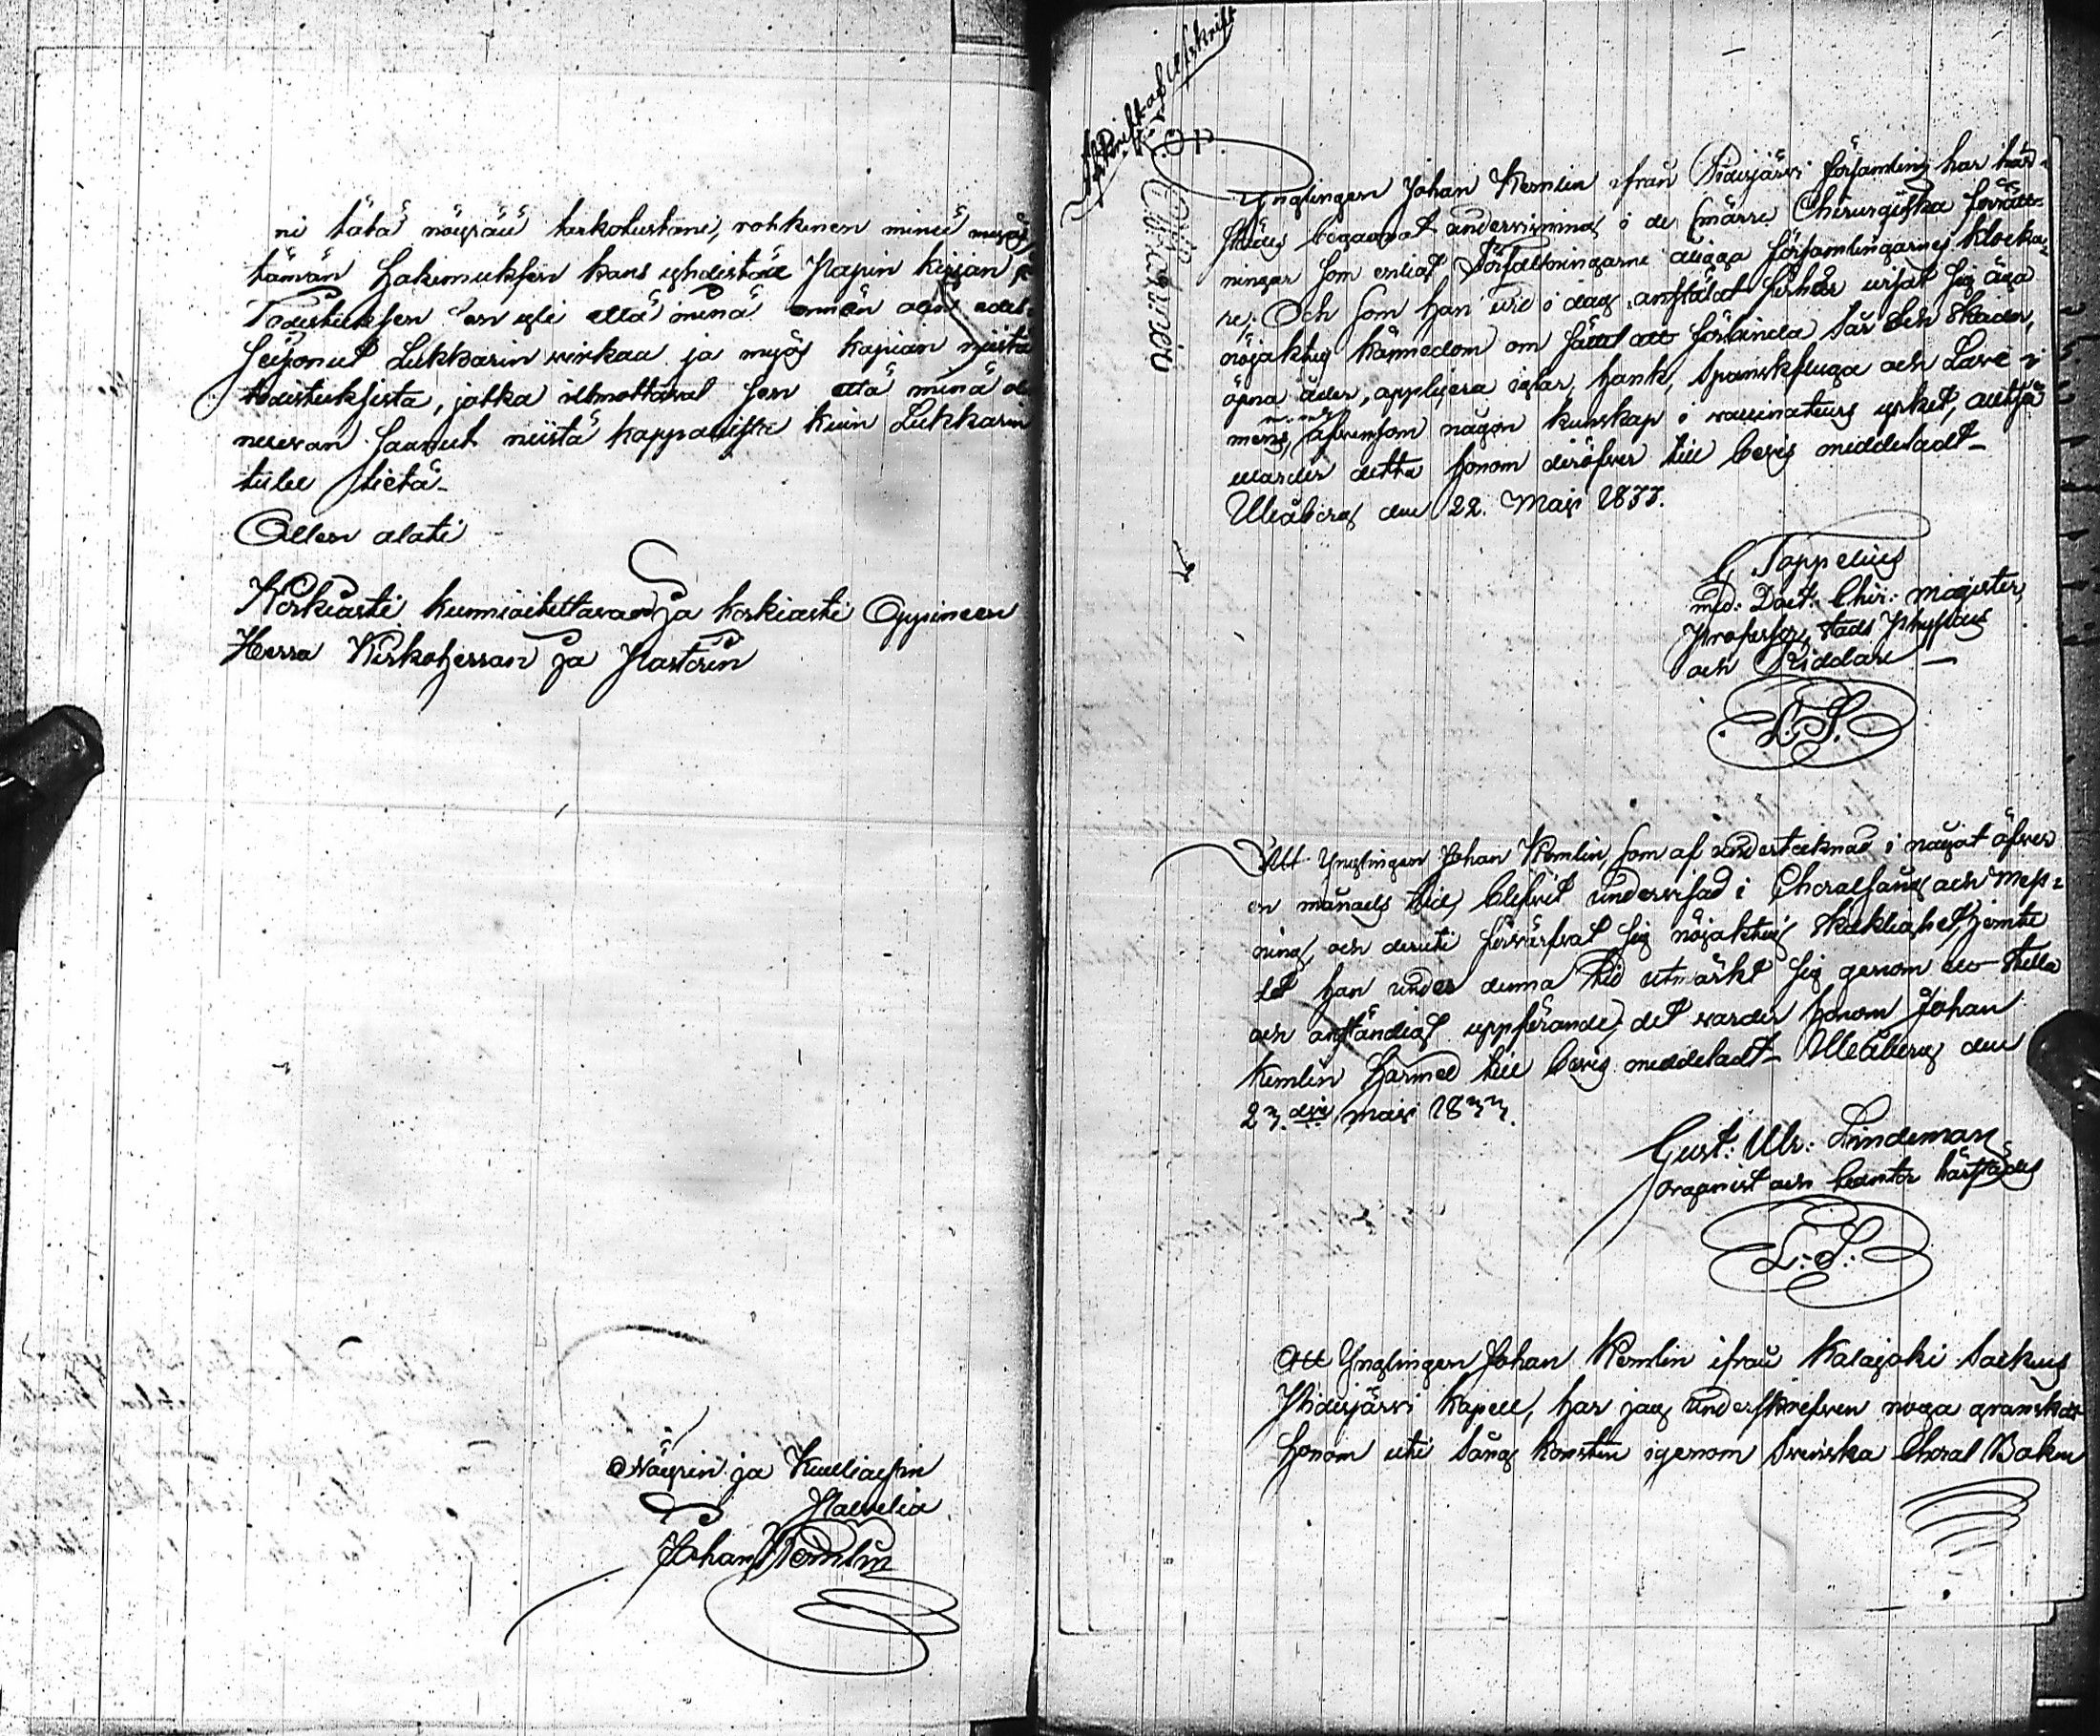 ni tätä nöyrää tarkotustani, rohkenen minä myös
tämän hakemuksen kans yhdistää Papin kirjan
Todistuksen en yli että minä ennän olen edes
seisonut Lukkarin virkaa ja myös kapian niistä
todistuksista, jotka ilmottavat sen että minä ole
neuvon saanut niistä kappaleista kuin Lukkarin
tulee tietä.
Ollen alati
Korkiasti kunnioitettavan ja korkiasti Oppineen
Herra Kirkoherran ja Pastorin
Nöyrin ja Kuuliaisin
Palvelia
Johan Kemlin
Afskrift af Afskrift
Ynglingen Johan Kemlin ifrån Pidisjärvi församling har här-
städes begagnat undervisning i de smärre Chirurgiska förrätt-
ningar som enligt Författningarne åligga församlingarnes klocka-
re; Och som han vid i dag anstäldt förhör visat sig äga
nöjaktig kännedom om sättet att förbinda sår och skador,
öpna åder, applicera iglar, hank, Spanskfluga och Lave-
mens, äfvensom någon kunskap i vaccinateurs yrket, altså
warder detta honom deröfver till bevis meddeladt
Uleåborg den 22. Maji 1833.
Toppelius
Med: Doct: Chir: Magister,
Professor, Stads Physicus
och Riddare
L.S.
Att Ynglingen Johan Kemlin, som af undertecknad i något öfver
en månads tid, blifvit undervisad i Choralsång och Mess-
ning, och deruti förvärfvat sig nöjaktig skicklighet, jemte
det han under denna tid utmärkt sig genom ett stilla
och anständigt uppförande; det varder honom Johan
Kemlin härmed till bevis meddeladt Uleåborg den
23. dje maji 1833.
Gust: Ulr: Lindeman
Organist och Cantor härstädes
L.S.
Att Ynglingen Johan Kemlin ifrån Kalajoki Sockens
Pidisjärvi Kapell, har jag underskrefven noga granskat
honom uti Sång konsten igenom Svenska Choral Boken